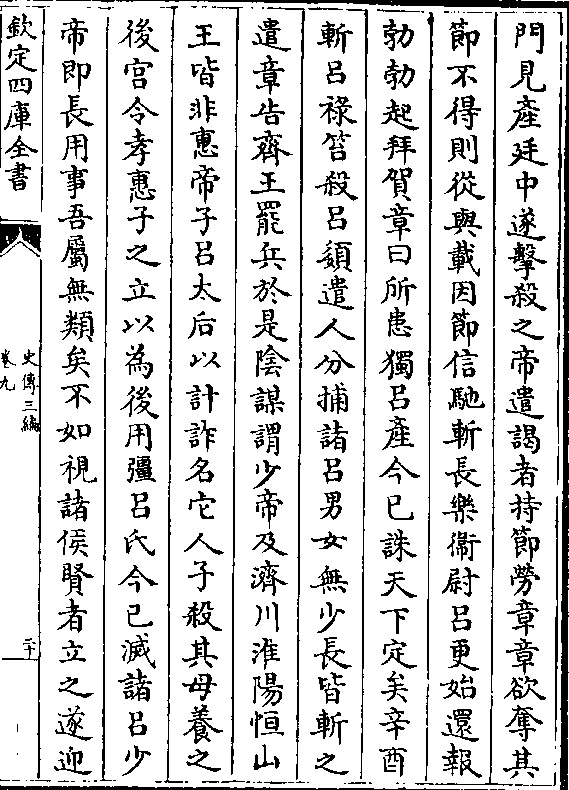 門見產廷中遂擊殺之帝遣謁者持節勞章章欲奪其
節不得則從與載因節信馳斬長樂衞尉呂更始還報
勃勃起拜賀章曰所患獨呂產今已誅天下定矣辛酉
斬呂祿笞殺呂嬃遣人分捕諸呂男女無少長皆斬之
遣章告齊王罷兵於是陰謀謂少帝及濟川淮陽恒山
王皆非惠帝子呂太后以計詐名它人子殺其母養之
後宮令孝惠子之立以為後用彊呂氏今已滅諸呂少
帝即長用事吾屬無類矣不如視諸侯賢者立之遂迎
欽定四庫全書
史傳三編
卷九
二十